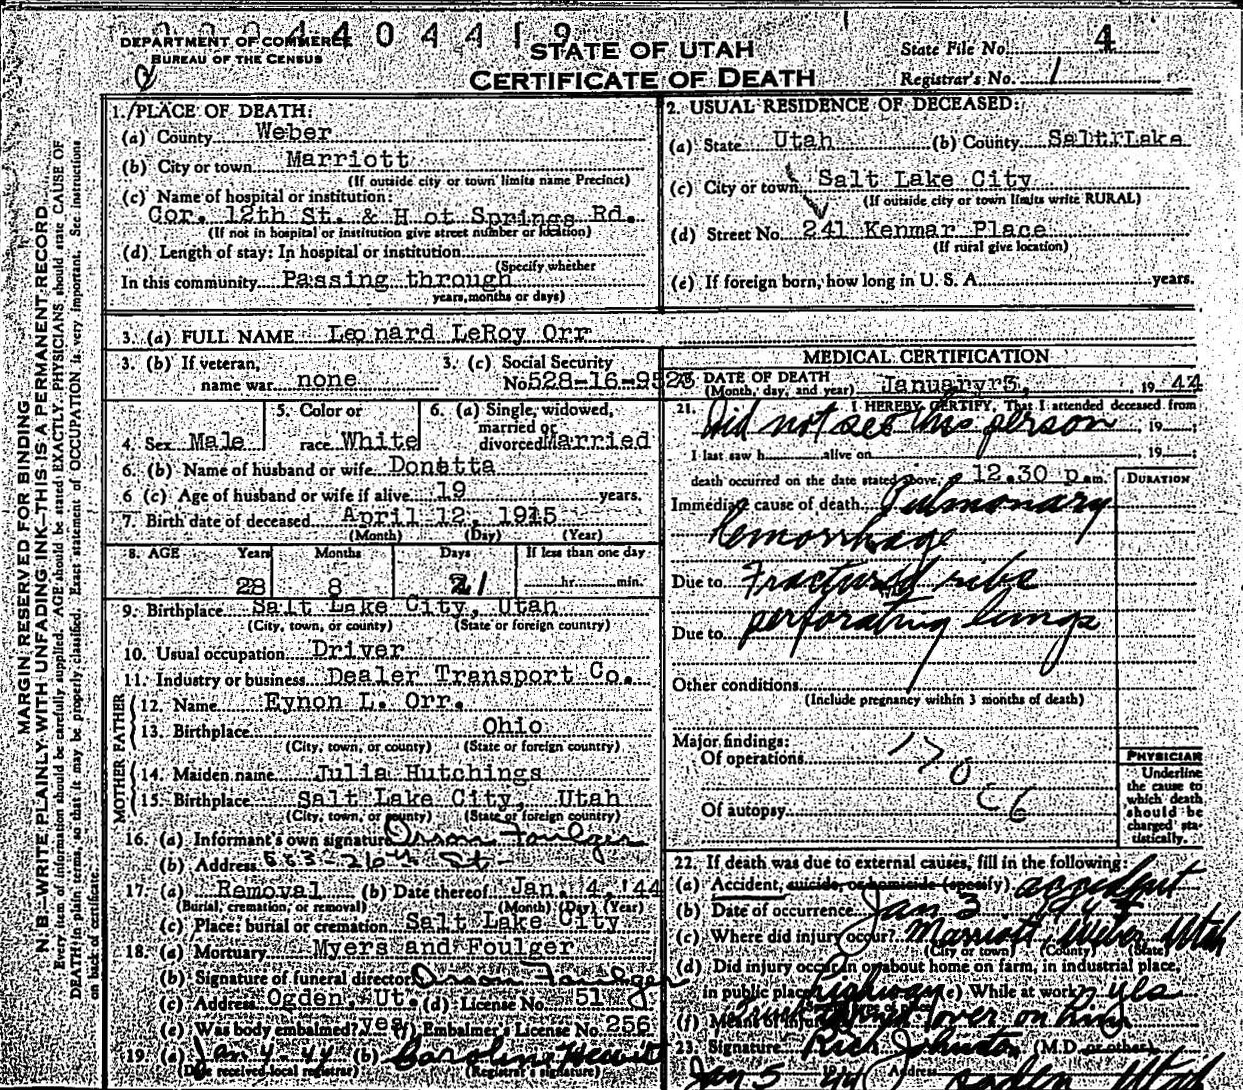 0 0 0 4 4 0 4 4 1 9
DEPARTMENT OF COMMERCE
BUREAU OF THE CENSUS
STATE OF UTAH
CERTIFICATE OF DEATH
State File No. 4
Registrar's No. 1
MARGIN RESERVED FOR BINDING
N. B.—WRITE PLAINLY WITH UNFADING INK—THIS IS A PERMANENT RECORD
Every item of information should be carefully supplied. AGE should be stated EXACTLY. PHYSICIANS should state CAUSE OF
DEATH in plain terms, so that it may be properly classified. Exact statement of OCCUPATION is very important. See instructions
on back of certificate.
1. PLACE OF DEATH:
(a) County Weber
(b) City or town Marriott
(If outside city or town limits name Precinct)
(c) Name of hospital or institution:
Cor. 12th St. & H ot Springs Rd.
(If not in hospital or institution give street number or location)
(d) Length of stay: In hospital or institution
(Specify whether
In this community Passing through
years, months or days)
2. USUAL RESIDENCE OF DECEASED:
(a) State Utah (b) County Salt Lake
(c) City or town Salt Lake City
(If outside city or town limits write RURAL)
(d) Street No. 241 Kenmar Place
(If rural give location)
(e) If foreign born, how long in U. S. A. years.
3. (a) FULL NAME Leonard LeRoy Orr
3. (b) If veteran,
name war none
3. (c) Social Security
No. 528-16-9523
4. Sex Male
5. Color or
race White
6. (a) Single, widowed,
married or
divorced Married
6. (b) Name of husband or wife Donetta
6 (c) Age of husband or wife if alive 19 years.
7. Birth date of deceased April 12, 1915
(Month) (Day) (Year)
8. AGE Years Months Days If less than one day
28 8 21 hr. min.
9. Birthplace Salt Lake City, Utah
(City, town, or county) (State or foreign country)
10. Usual occupation Driver
11. Industry or business Dealer Transport Co.
FATHER
12. Name Eynon L. Orr.
13. Birthplace Ohio
(City, town, or county) (State or foreign country)
MOTHER
14. Maiden name Julia Hutchings
15. Birthplace Salt Lake City, Utah
(City, town, or county) (State or foreign country)
16. (a) Informant's own signature Orson Foulger
(b) Address 553-26th St-
17. (a) Removal (b) Date thereof Jan. 4, '44
(Burial, cremation, or removal) (Month) (Day) (Year)
(c) Place: burial or cremation Salt Lake City
18. (a) Mortuary Myers and Foulger
(b) Signature of funeral director Orson Foulger
(c) Address Ogden, Ut. (d) License No. 51
(e) Was body embalmed? yes (f) Embalmer's License No. 256
19. (a) Jan 4-44 (b) Caroline Hewitt
(Date received local registrar) (Registrar's signature)
MEDICAL CERTIFICATION
DATE OF DEATH
(Month, day, and year) January 3, 1944
21. I HEREBY CERTIFY, That I attended deceased from
Did not see this person, 19
I last saw h alive on , 19
death occurred on the date stated above, 12.30 p.m.
DURATION
Immediate cause of death Pulmonary
Hemorrhage
Due to Fractured ribs
Due to perforating lungs
Other conditions
(Include pregnancy within 3 months of death)
Major findings:
Of operations
170
Of autopsy
C6
PHYSICIAN
Underline
the cause to
which death
should be
charged sta-
tistically.
22. If death was due to external causes, fill in the following:
(a) Accident, suicide, or homicide (specify) accident
(b) Date of occurrence Jan 3 1944
(c) Where did injury occur? Marriott Weber Utah
(City or town) (County) (State)
(d) Did injury occur in or about home on farm, in industrial place,
in public place highway (e) While at work? yes
(f) Means of injury Truck turned over on him
23. Signature Rich Johnston (M.D. or other)
Jan 5 44 Address Ogden Utah